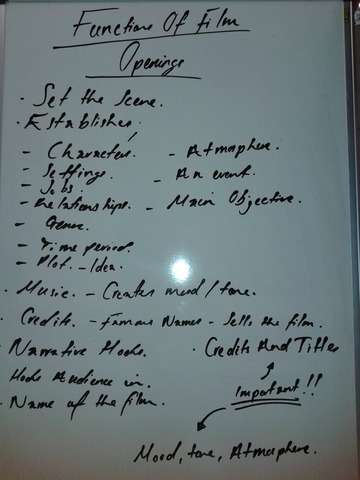 Functions Of Film
Openings
• Set the Scene.
• Establishes:
- Characters. - Atmosphere.
- Settings. - An event.
- Jobs.
- Relationships. - Main Objective.
- Genre.
- Time period.
- Plot. - Idea.
• Music. - Creates mood/tone.
• Credits. - Famous Names - Sells the film.
• Narrative Hooks. • Credits And Titles
Hooks Audience in. Important!!
• Name of the film.
Mood, tone, Atmosphere.